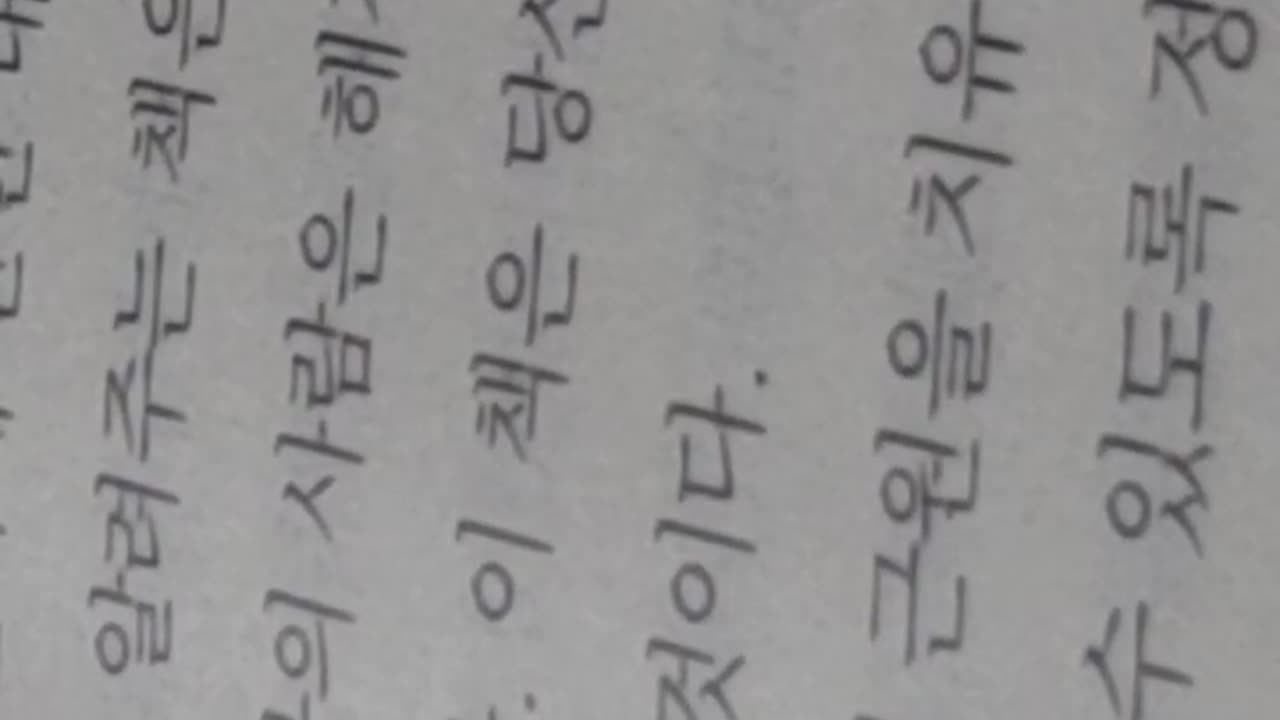 알려주는 책은
의 사람은 헤
. 이 책은 당신
것이다.
근원을 치유
수 있도록 정